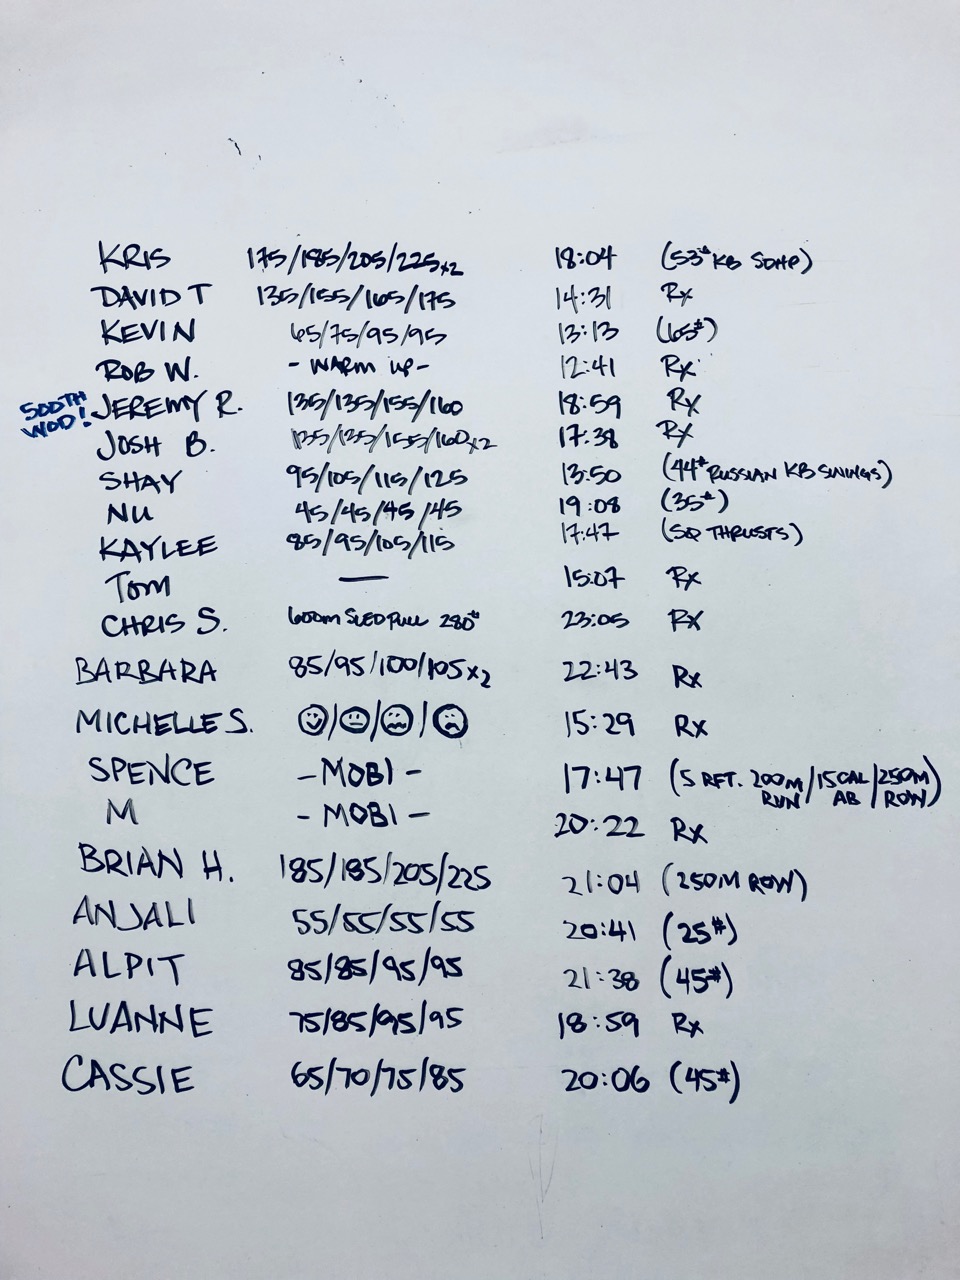 KRIS 175/185/205/225x2 18:04 (53# KB SDHP)
DAVID T 135/155/165/175 14:31 Rx
KEVIN 65/75/95/95 13:13 (65#)
ROB W. - WARM UP - 12:41 Rx
500TH WOD! JEREMY R. 135/135/155/160 18:59 Rx
JOSH B. 135/135/155/160x2 17:38 Rx
SHAY 95/105/115/125 13:50 (44# RUSSIAN KB SWINGS)
NU 45/45/45/45 19:08 (35#)
KAYLEE 85/95/105/115 17:47 (SQ THRUSTS)
TOM — 15:07 Rx
CHRIS S. 600m SLED PULL 280# 23:05 Rx
BARBARA 85/95/100/105x2 22:43 Rx
MICHELLE S. / / / 15:29 Rx
SPENCE - MOBI - 17:47 (5 RFT. 200M RUN/15 CAL AB/250M ROW)
M - MOBI - 20:22 Rx
BRIAN H. 185/185/205/225 21:04 (250M ROW)
ANJALI 55/55/55/55 20:41 (25#)
ALPIT 85/85/95/95 21:38 (45#)
LUANNE 75/85/95/95 18:59 Rx
CASSIE 65/70/75/85 20:06 (45#)